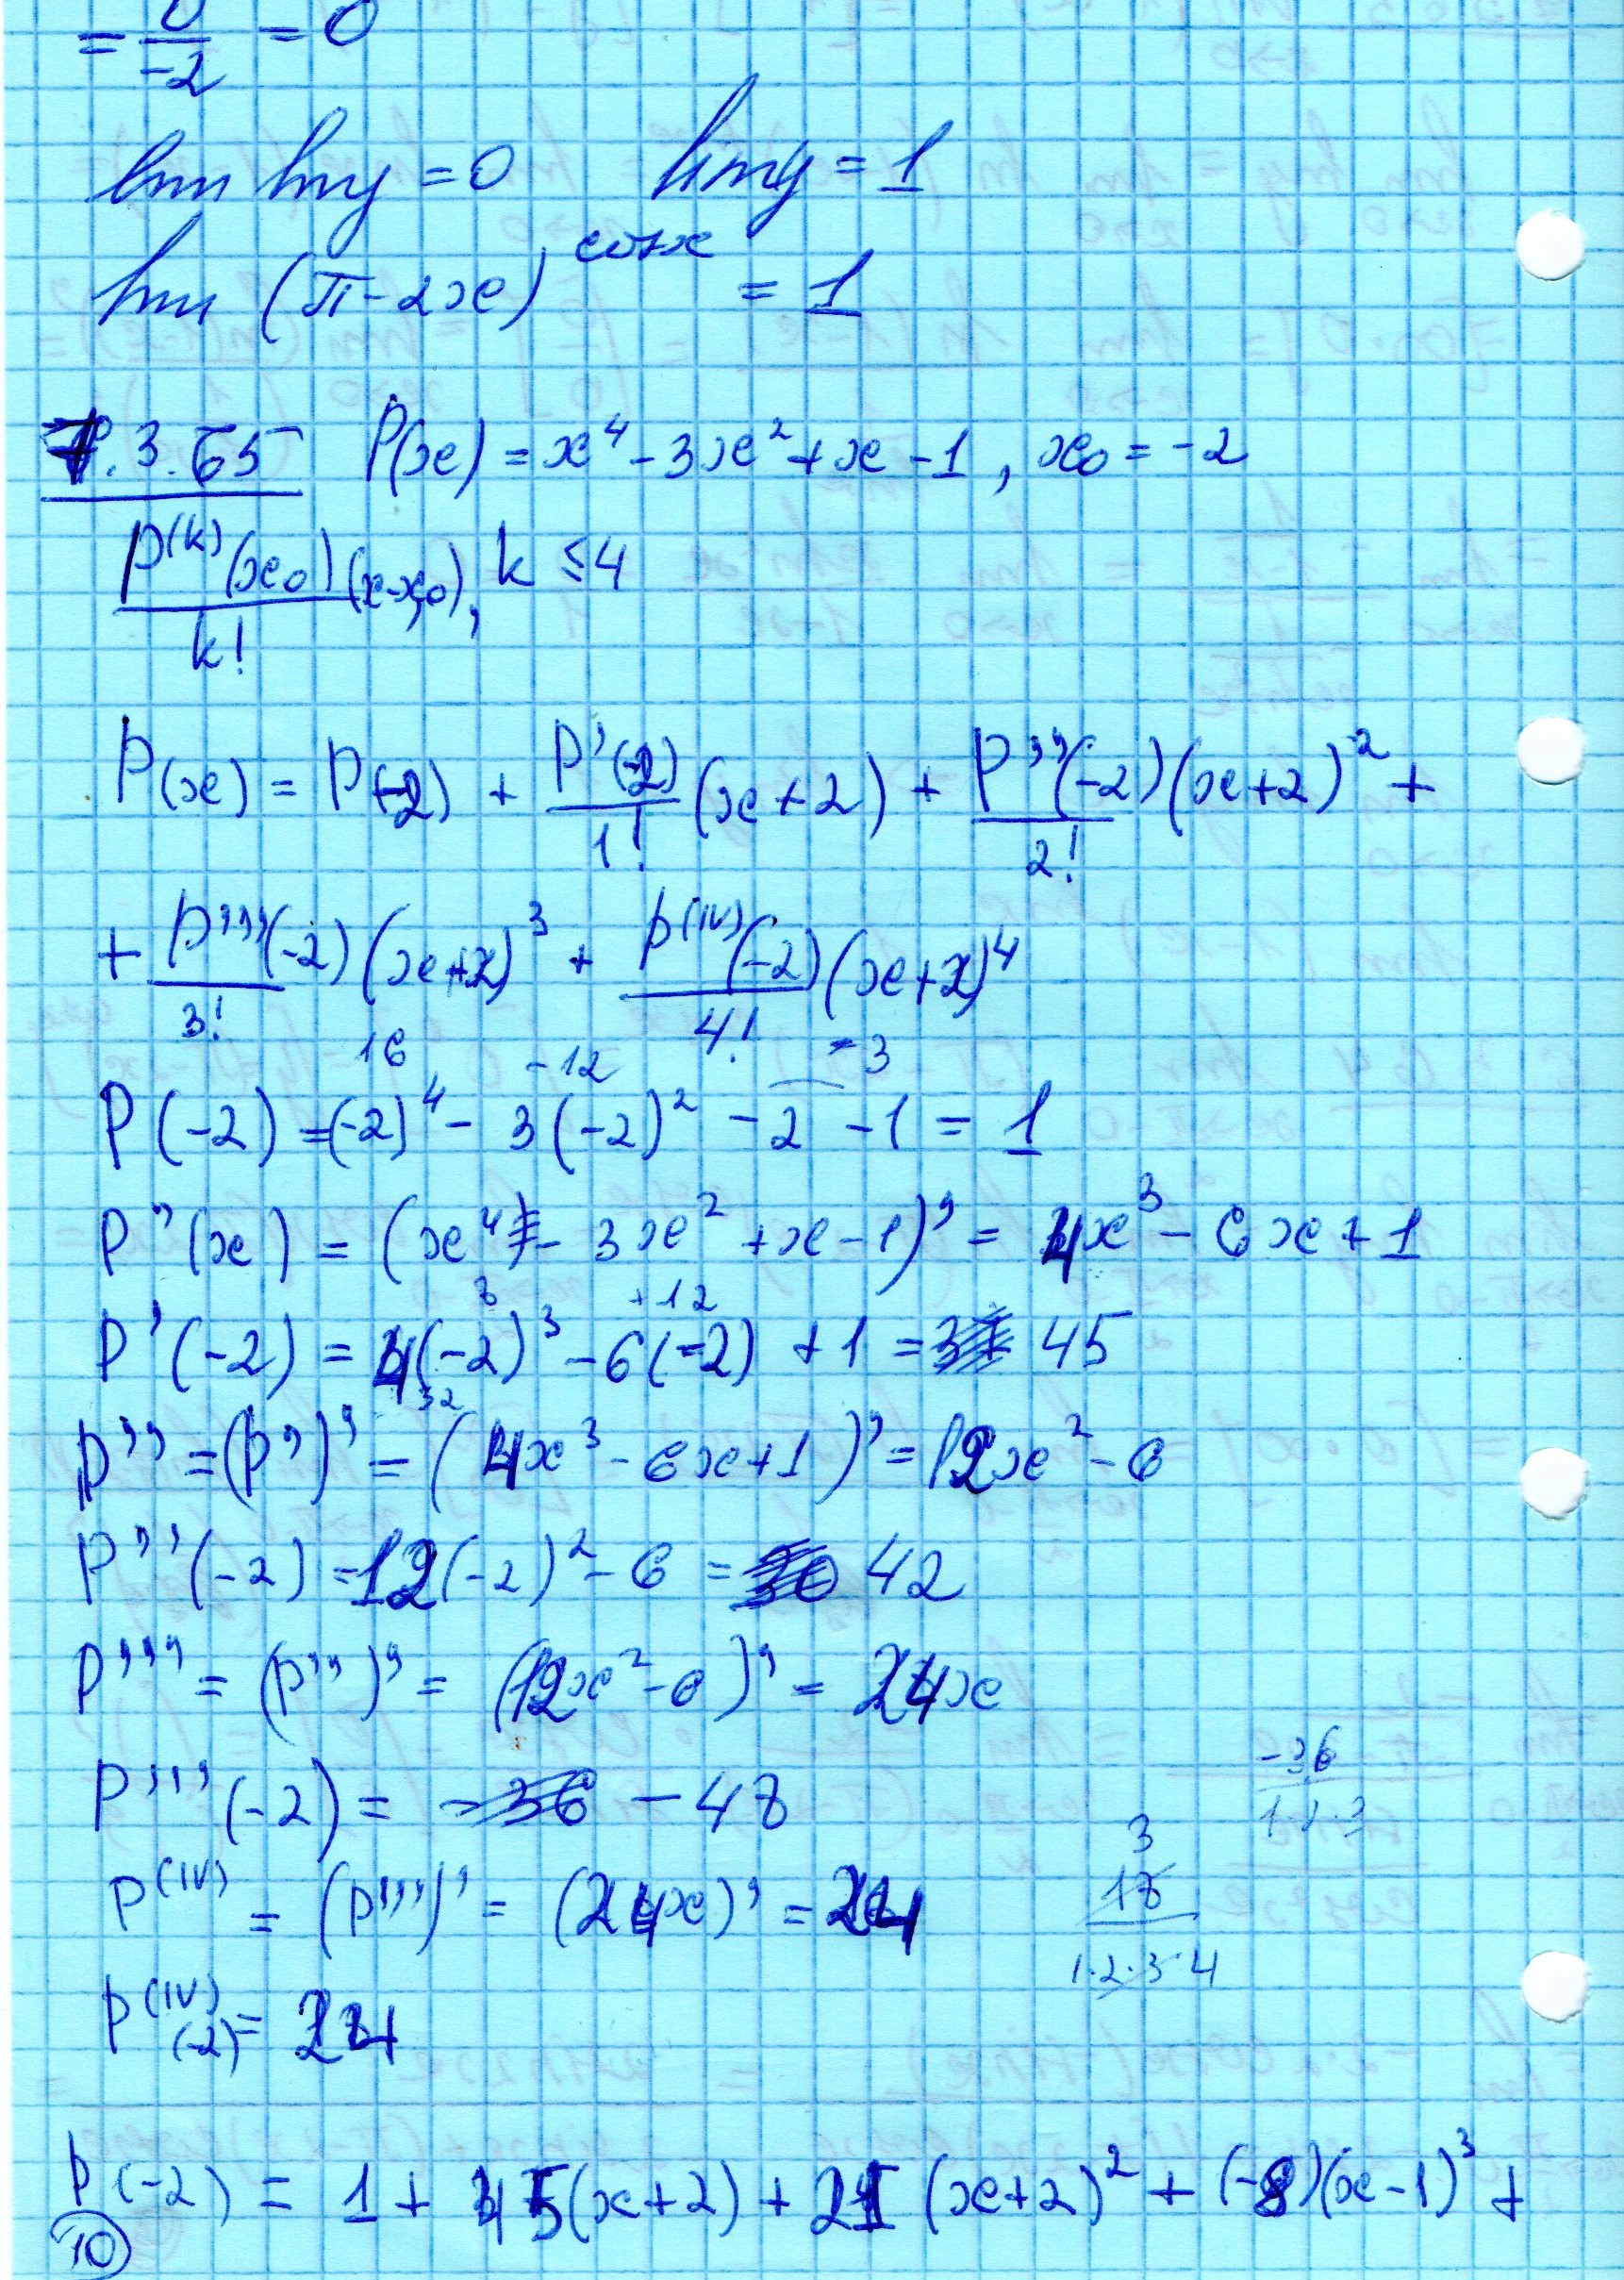 = 0/-2 = 0
lim ln y = 0 lim y = 1
lim (π - 2x)^cosx = 1
7.3.65 P(x) = x⁴ - 3x² + x - 1, x₀ = -2
P^(k)(x₀)/k! (x-x₀), k ≤ 4
P(x) = P(-2) + P'(-2)/1! (x+2) + P''(-2)/2! (x+2)² +
+ P'''(-2)/3! (x+2)³ + P^(IV)(-2)/4! (x+2)⁴
16 -12 -3
P(-2) = (-2)⁴ - 3(-2)² - 2 - 1 = 1
P'(x) = (x⁴ - 3x² + x - 1)' = 4x³ - 6x + 1
8 +12
P'(-2) = 4(-2)³ - 6(-2) + 1 = 45
32
P'' = (P')' = (4x³ - 6x + 1)' = 12x² - 6
P''(-2) = 12(-2)² - 6 = 42
P''' = (P'')' = (12x² - 6)' = 24x
P'''(-2) = -36 -48
-36/1·2·3
P^(IV) = (P''')' = (24x)' = 24
3
18/1·2·3·4
P^(IV)(-2) = 24
P(-2) = 1 + 45(x+2) + 21(x+2)² + (-8)(x-1)³ +
10